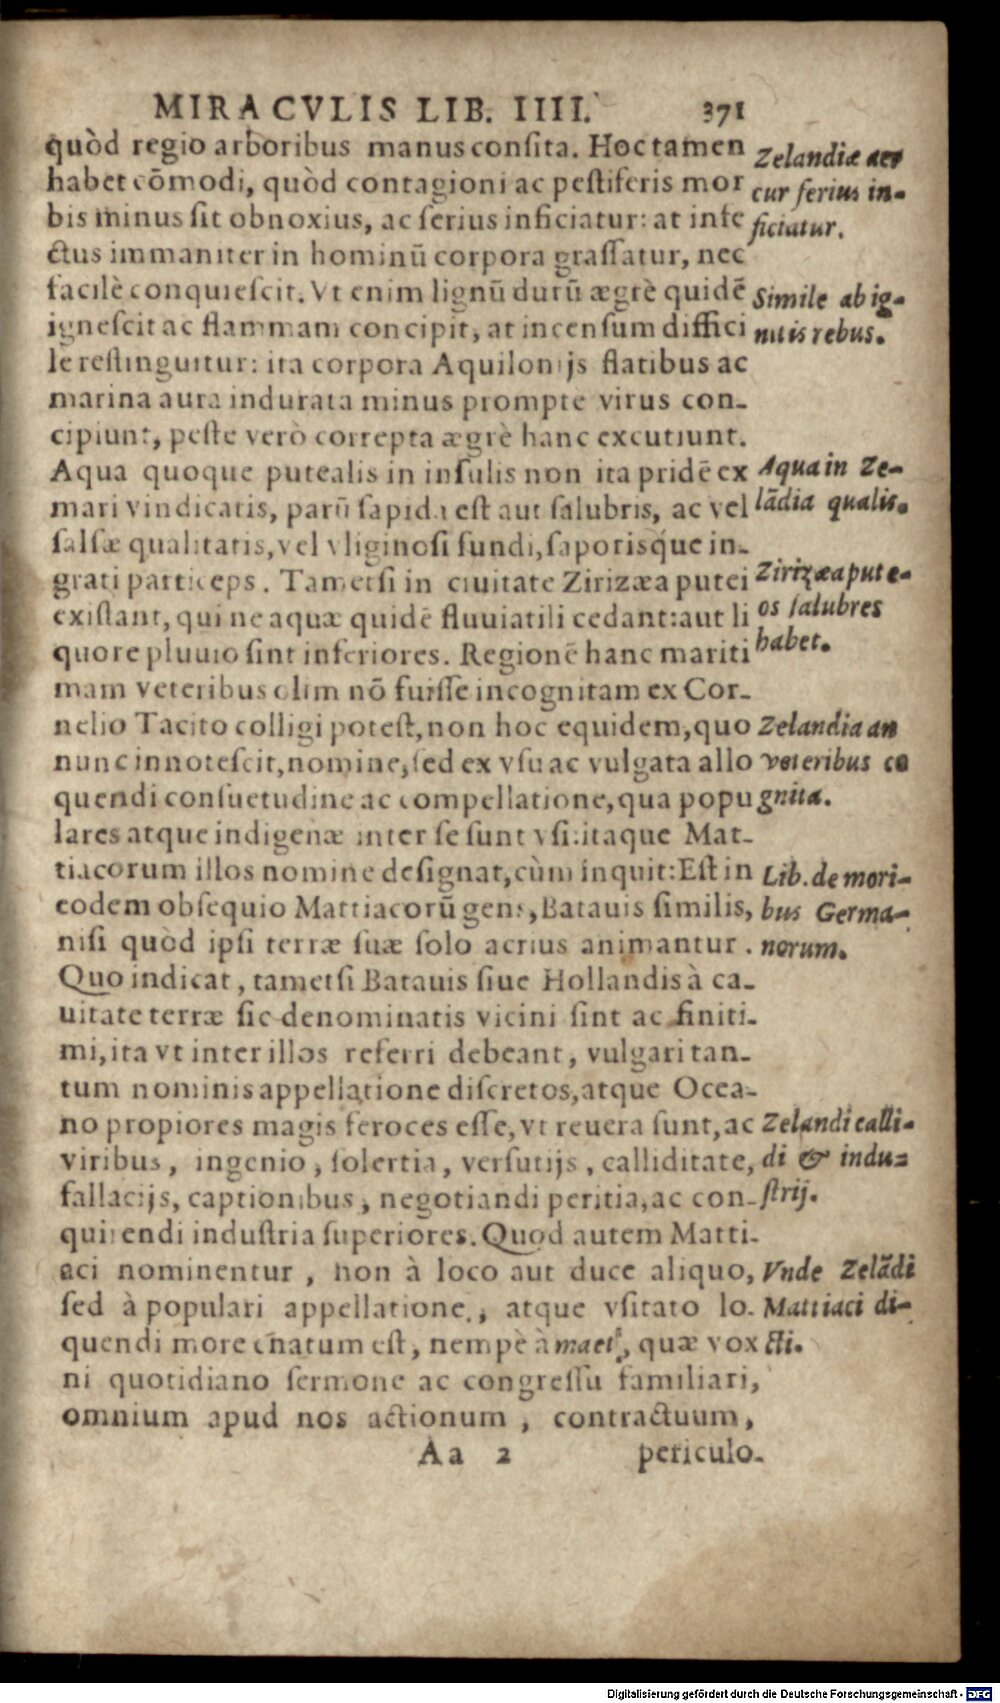 MIRACVLIS LIB. IIII. 371
quòd regio arboribus manus consita. Hoc tamen
habet cōmodi, quòd contagioni ac pestiferis mor
bis minus sit obnoxius, ac serius inficiatur: at infe
ctus immaniter in hominū corpora grassatur, nec
facilè conquiescit. Vt enim lignū durū ægrè quidē
ignescit ac flammam concipit, at incensum diffici
le restinguitur: ita corpora Aquilonijs flatibus ac
marina aura indurata minus prompte virus con-
cipiunt, peste verò correpta ægrè hanc excutiunt.
Aqua quoque putealis in insulis non ita pridē ex
mari vindicatis, parū sapida est aut salubris, ac vel
salsæ qualitatis, vel vliginosi fundi, saporisq́ue in-
grati particeps. Tametsi in ciuitate Zirizæa putei
existant, qui ne aquæ quidē fluuiatili cedant: aut li
quore pluuio sint inferiores. Regionē hanc mariti
mam veteribus olim nō fuisse incognitam ex Cor-
nelio Tacito colligi potest, non hoc equidem, quo
nunc innotescit, nomine, sed ex vsu ac vulgata allo
quendi consuetudine ac compellatione, qua popu
lares atque indigenæ inter se sunt vsi: itaque Mat-
tiacorum illos nomine designat, cùm inquit: Est in
eodem obsequio Mattiacorū gens, Batauis similis,
nisi quòd ipsi terræ suæ solo acrius animantur.
Quo indicat, tametsi Batauis siue Hollandis à ca-
uitate terræ sic denominatis vicini sint ac finiti-
mi, ita vt inter illos referri debeant, vulgari tan-
tum nominis appellatione discretos, atque Ocea-
no propiores magis feroces esse, vt reuera sunt, ac
viribus, ingenio, solertia, versutijs, calliditate,
fallacijs, captionibus, negotiandi peritia, ac con-
quirendi industria superiores. Quod autem Matti-
aci nominentur, non à loco aut duce aliquo,
sed à populari appellatione, atque vsitato lo-
quendi more enatum est, nempè à maet, quæ vox
ni quotidiano sermone ac congressu familiari,
omnium apud nos actionum, contractuum,
Aa 2 periculo-
Zelandiæ aer
cur serius in-
ficiatur.
Simile ab ig-
nitis rebus.
Aqua in Ze-
lādia qualis.
Zirizæa pute-
os salubres
habet.
Zelandia an
veteribus co
gnita.
Lib. de mori-
bus Germa-
norum.
Zelandi calli-
di & indu-
strij.
Vnde Zelādi
Mattiaci di-
cti.
Digitalisierung gefördert durch die Deutsche Forschungsgemeinschaft - DFG